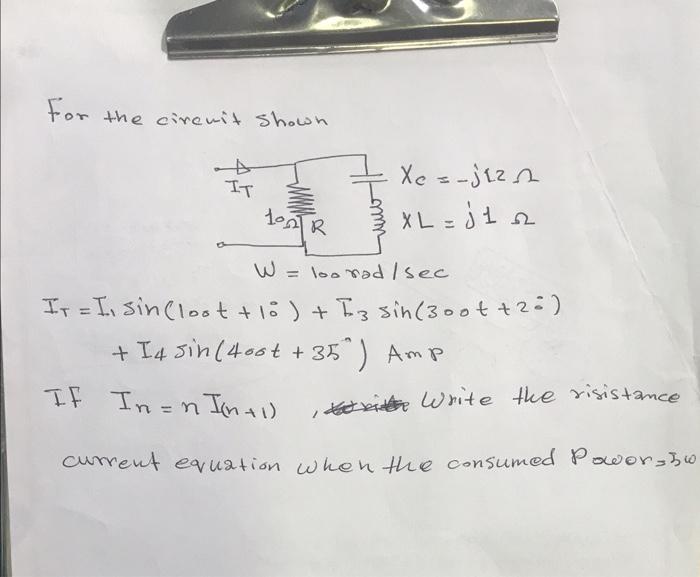 For the circuit shown
IT
Xc = -j12 Ω
10Ω R
XL = j1 Ω
W = 100 rad/sec
IT = I1 sin(100t + 10°) + I3 sin(300t + 20°)
+ I4 sin(400t + 35°) Amp
If In = n I(n+1) , Write the risistance
current equation when the consumed Power = 5w